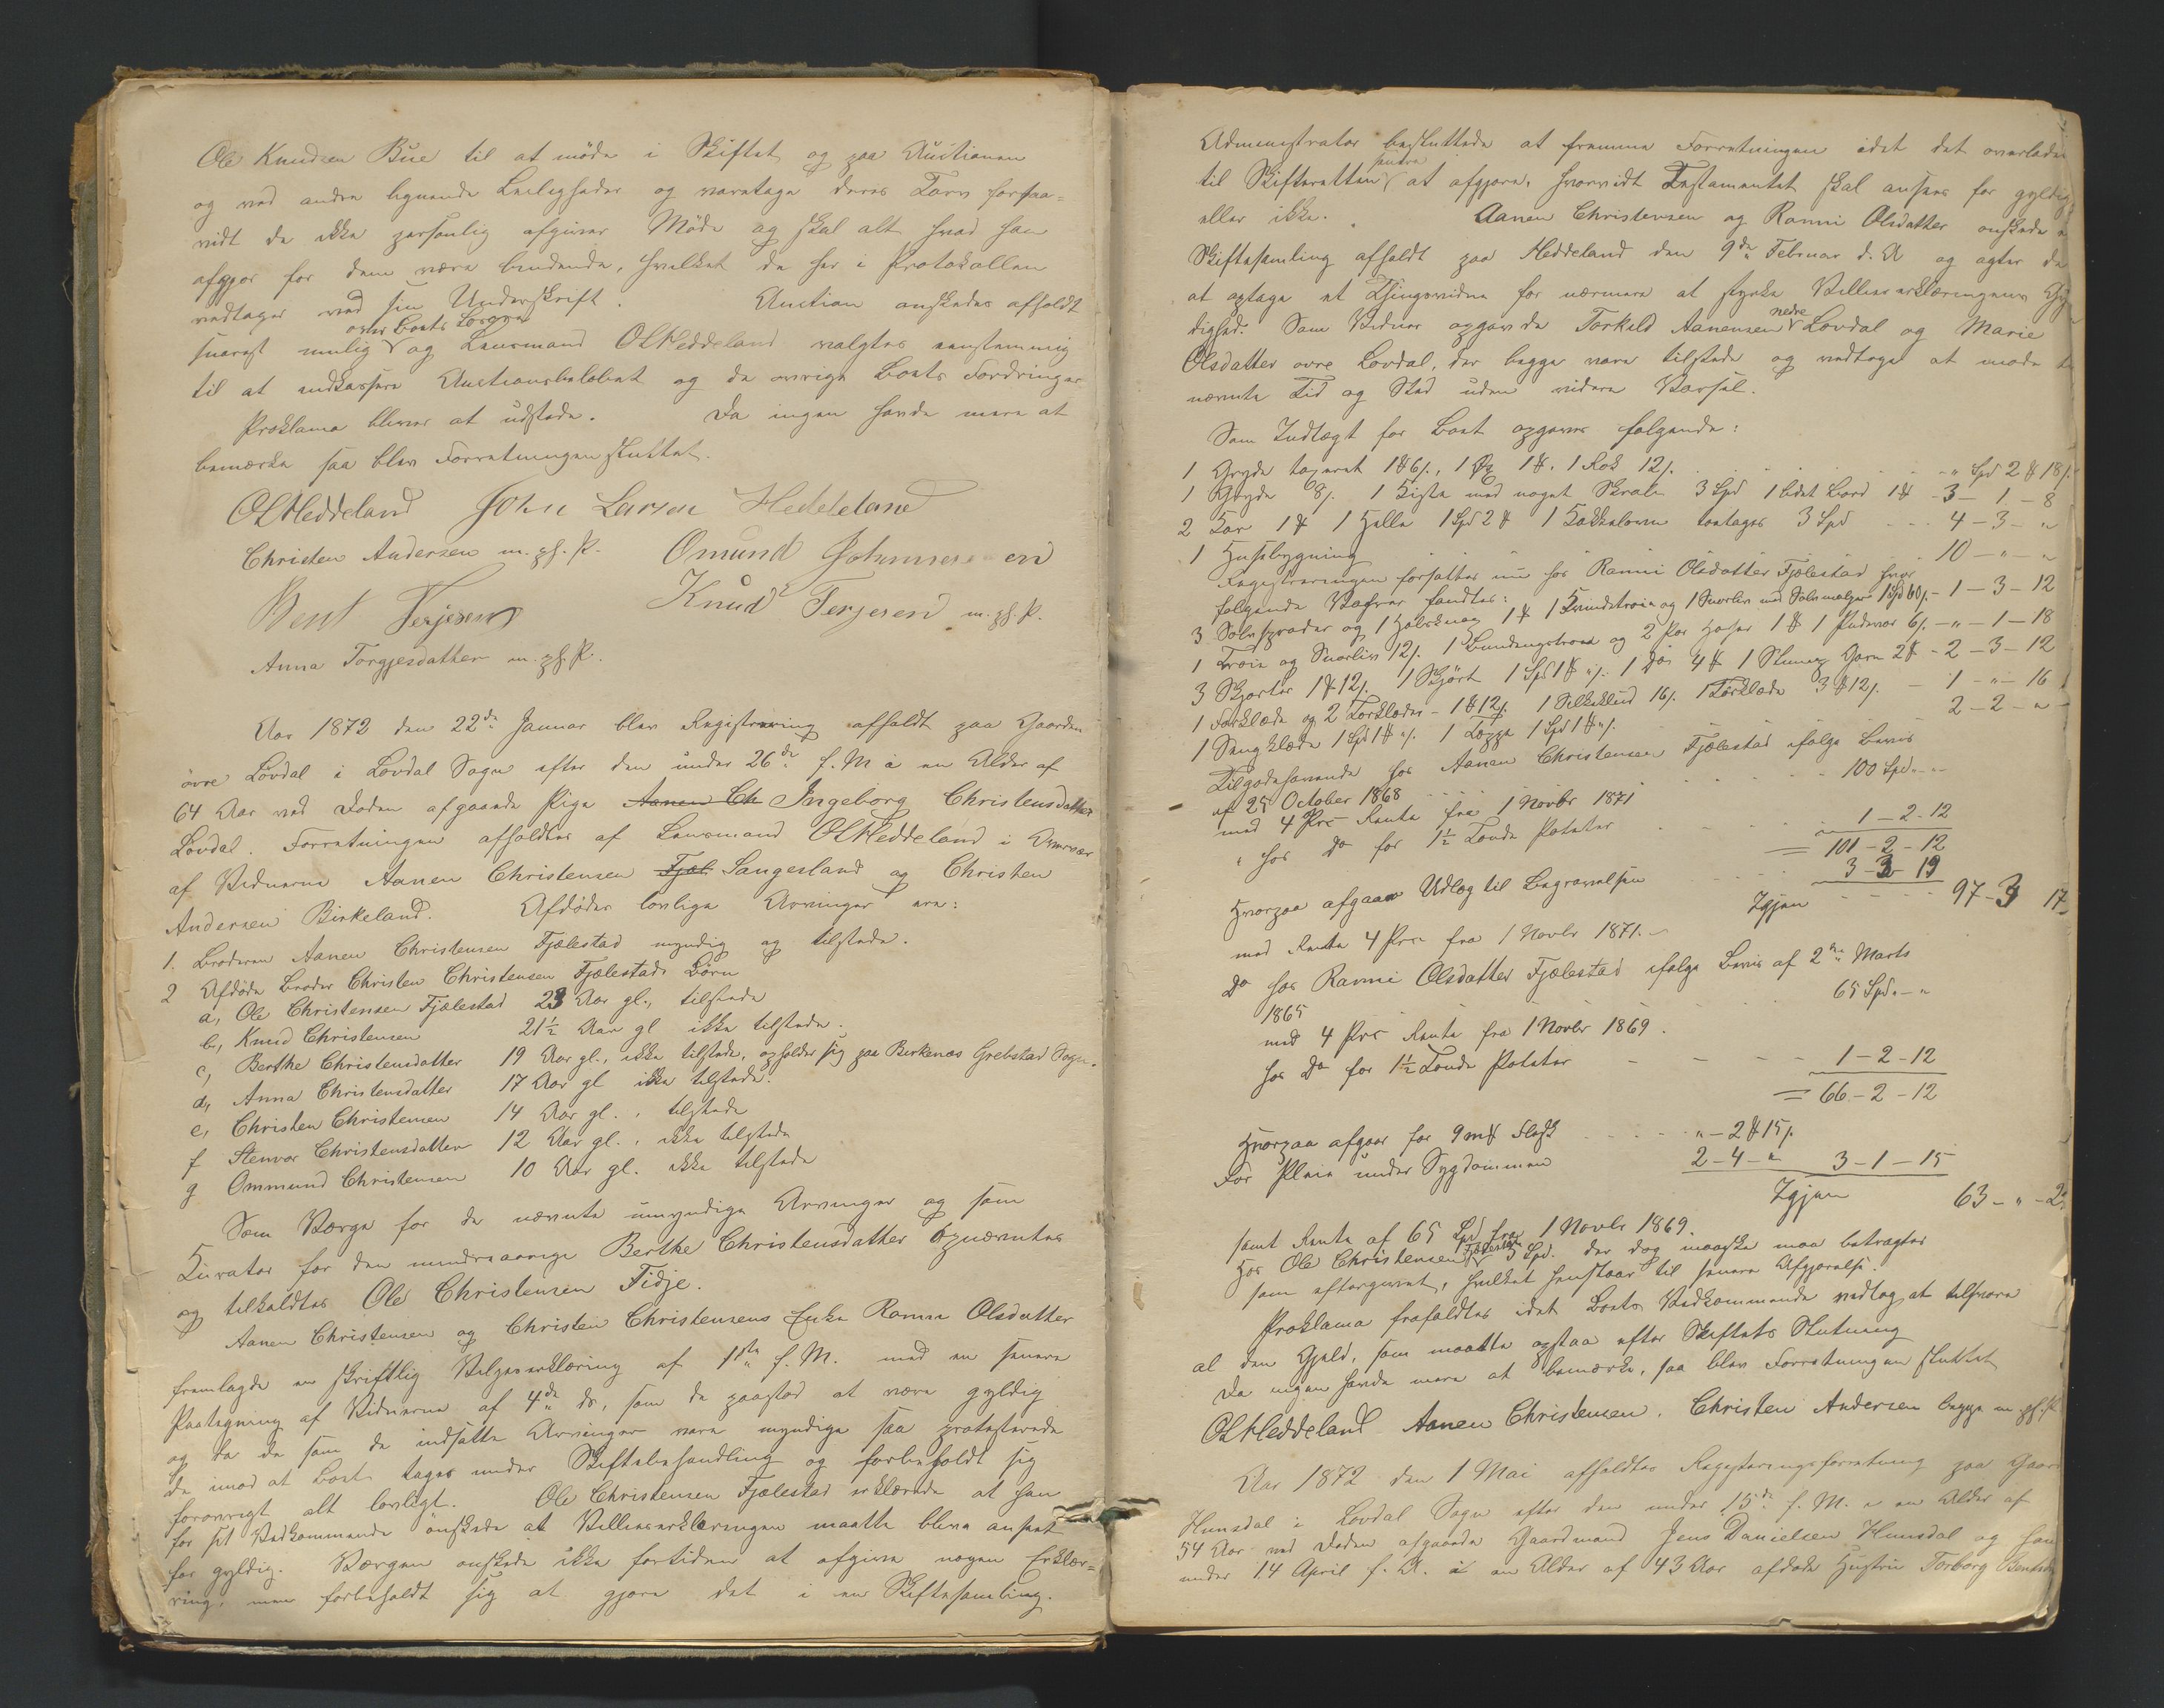 Ole Knudsen Bue til at möde i Skiftet og paa Auctionen
og ved andre lignende Leiligheder og varetage deres Tarv forsaa-
vidt de ikke personlig afgiver Möde og skal alt hvad han
afgjör for dem være bindende, hvilket de her i Protokollen
vedtager ved sin Underskrift. Auction önskedes afholdt
snarest mulig over Boets Lösøre og Lensmand OLHeddeland valgtes eenstemmig
til at indkassere Auctionsbelöbet og de övrige Boets Fordringer
Proklama bliver at udstede. Da ingen havde mere at
bemærke saa blev Forretningen sluttet.
OLHeddeland John Larsen Heddeland
Christen Andersen m. p. P. Omund Johnnesen
Bent Terjesen Knud Terjesen m. p. P.
Anna Torgjesdatter m. p. P.
Aar 1872 den 22de Januar blev Registrering afholdt paa Gaarden
övre Lövdal i Lövdal Sogn efter den under 26de f. M. i en Alder af
64 Aar ved Döden afgaaede Pige Aanen Ch Ingeborg Christensdatter
Lövdal. Forretningen afholdtes af Lensmand OLHeddeland i Overvær
af Vidnerne Aanen Christensen Fjæl Sangesland og Christen
Andersen Birkeland. Afdödes lovlige Arvinger ere:
1. Broderen Aanen Christensen Fjælestad myndig og tilstede.
2 Afdöde Broder Christen Christensen Fjælestads Börn
a, Ole Christensen Fjælestad 23 Aar gl., tilstede
b, Knud Christensen 21½ Aar gl ikke tilstede.
c, Berthe Christensdatter 19 Aar gl., ikke tilstede, opholder sig paa Birkenæs Grebstad Sogn.
d, Anna Christensdatter 17 Aar gl ikke tilstede.
e, Christen Christensen 14 Aar gl., tilstede
f Stenvor Christensdatter 12 Aar gl., ikke tilstede
g Ommund Christensen 10 Aar gl. ikke tilstede
Som Værge for de nævnte umyndige Arvinger og som
Kurator for den mindreaarige Berthe Christensdatter opnævntes
og tilkaldtes Ole Christensen Fidje.
Aanen Christensen og Christen Christensens Enke Ranni Olsdatter
fremlagde en skriftlig Villieserklæring af 1ste f. M. med en senere
Paategning af Vidnerne af 4de ds, som de paastod at være gyldig
og da de som de indsatte Arvinger vare myndige saa protesterede
de imod at Boet tages under Skiftebehandling og forbeholdt sig
forövrigt alt lovligt. Ole Christensen Fjælestad erklærede at han
for sit Vedkommende önskede at Villieserklæringen maatte blive anseet
for gyldig. Værgen önskede ikke fortiden at afgive nogen Erklær-
ring, men forbeholdt sig at gjöre det i en Skiftesamling.
Administrator besluttede at fremme Forretningen idet det overlades
til Skifteretten senere at afgjöre, hvorvidt Testamentet skal ansees for gyldig
eller ikke. Aanen Christensen og Ranni Olsdatter önskede
Skiftesamling afholdt paa Heddeland den 9de Februar d. A og agter de
at optage et Thingsvidne for nærmere at styrke Villieserklæringens Gyl
dighed. Som Vidner opgav de Torkild Aanensen nedre Lövdal og Marie
Olsdatter övre Lövdal, der begge vare tilstede og vedtoge at möde
nævnte Tid og Sted uden videre Varsel.
Som Indtægt for Boet opgaves fölgende:
1 Gryde taxeret 1 ₰ 6 s., 1 Øx 1 ₰. 1 Rok 12 s. " Spd 2 ₰ 18 s.
1 Gryde 8 s. 1 Kiste med noget Skrab 3 Spd 1 lidet Bord 1 ₰ - 3 - 1 - 8
2 Kar 1 ₰ 1 Helle 1 Spd 2 ₰ 1 Kakkelovn taxeres 3 Spd - 4 - 3 - "
1 Husbygning 10 - " - "
Registreringen forsattes nu hos Ranni Olsdatter Fjælestad hvor
fölgende Sager fandtes:
3 Sölvspænder og 1 Halsknap 1 ₰ 1 Fruntströie og 1 Snorliv med Sölvmalger 1 Spd 60 s. - 1 - 3 - 12
1 Tröie og Snorliv 12 s. 1 Bundingströie og 2 Par Hoser 1 ₰ 1 Pudevar 6 s. - " - 1 - 18
3 Skjorter 1 ₰ 12 s. 1 Skjört 1 Spd 1 ₰ " s. 1 4 ₰ 1 Slump Garn 2 ₰ - 2 - 3 - 12
1 Forklæde og 2 Törklæder - 1 ₰ 12 s. 1 Silkeklud 16 s. 1 Törklæde 3 ₰ 12 s. - 1 - " - 16
1 Sengklæde 1 Spd 1 ₰ " s. 1 Teppe 1 Spd 1 ₰ " s. 2 - 2 - "
Tilgodehavende hos Aanen Christensen Fjælestad ifölge Bevis
af 25 October 1868 100 Spd - "
med 4 Prc Rente fra 1 Novbr 1871
" hos do for 1½ Tönde Poteter 1 - 2 - 12
= 101 - 2 - 12
Hvorpaa afgaar Udlæg til Begravelsen 3 - 3 - 19
Igjen 97 - 3 17
med Rente 4 Prc fra 1 Novbr 1871.
Do hos Ranni Olsdatter Fjælestad ifölge Bevis af 2den Marts
1865 65 Spd - "
med 4 Prc Rente fra 1 Novbr 1869.
hos Do for 1½ Tönde Poteter 1 - 2 - 12
= 66 - 2 - 12
Hvorpaa afgaar for 9 m₰ Flesk " - 2 ₰ 15 s.
For Pleie under Sygdommen 2 - 4 - " 3 - 1 - 15
Igjen 63 - " - 2
samt Rente af 65 Spd fra 1 Novbr 1869.
Hos Ole Christensen Fjælestad 5 Spd. der dog maaske maa betragtes
som eftergivet, hvilket henstaar til senere Afgjörelse.
Proklama frafaldtes idet Boets Vedkommende vedtog at tilsvare
al den Gjæld, som maatte opstaa efter Skiftets Slutning
Da ingen havde mere at bemærke, saa blev Forretningen sluttet
OLHeddeland Aanen Christensen. Christen Andersen begge m p. P.
Aar 1872 den 1 Mai afholdtes Registreringsforretning paa Gaard
Hunsdal i Lövdal Sogn efter den under 15de f. M. i en Alder af
54 Aar ved Döden afgaaede Gaardmand Jens Danielsen Hunsdal og hans
under 14 April f. A. i en Alder af 43 Aar afdöde Hustru Torborg Bentsd